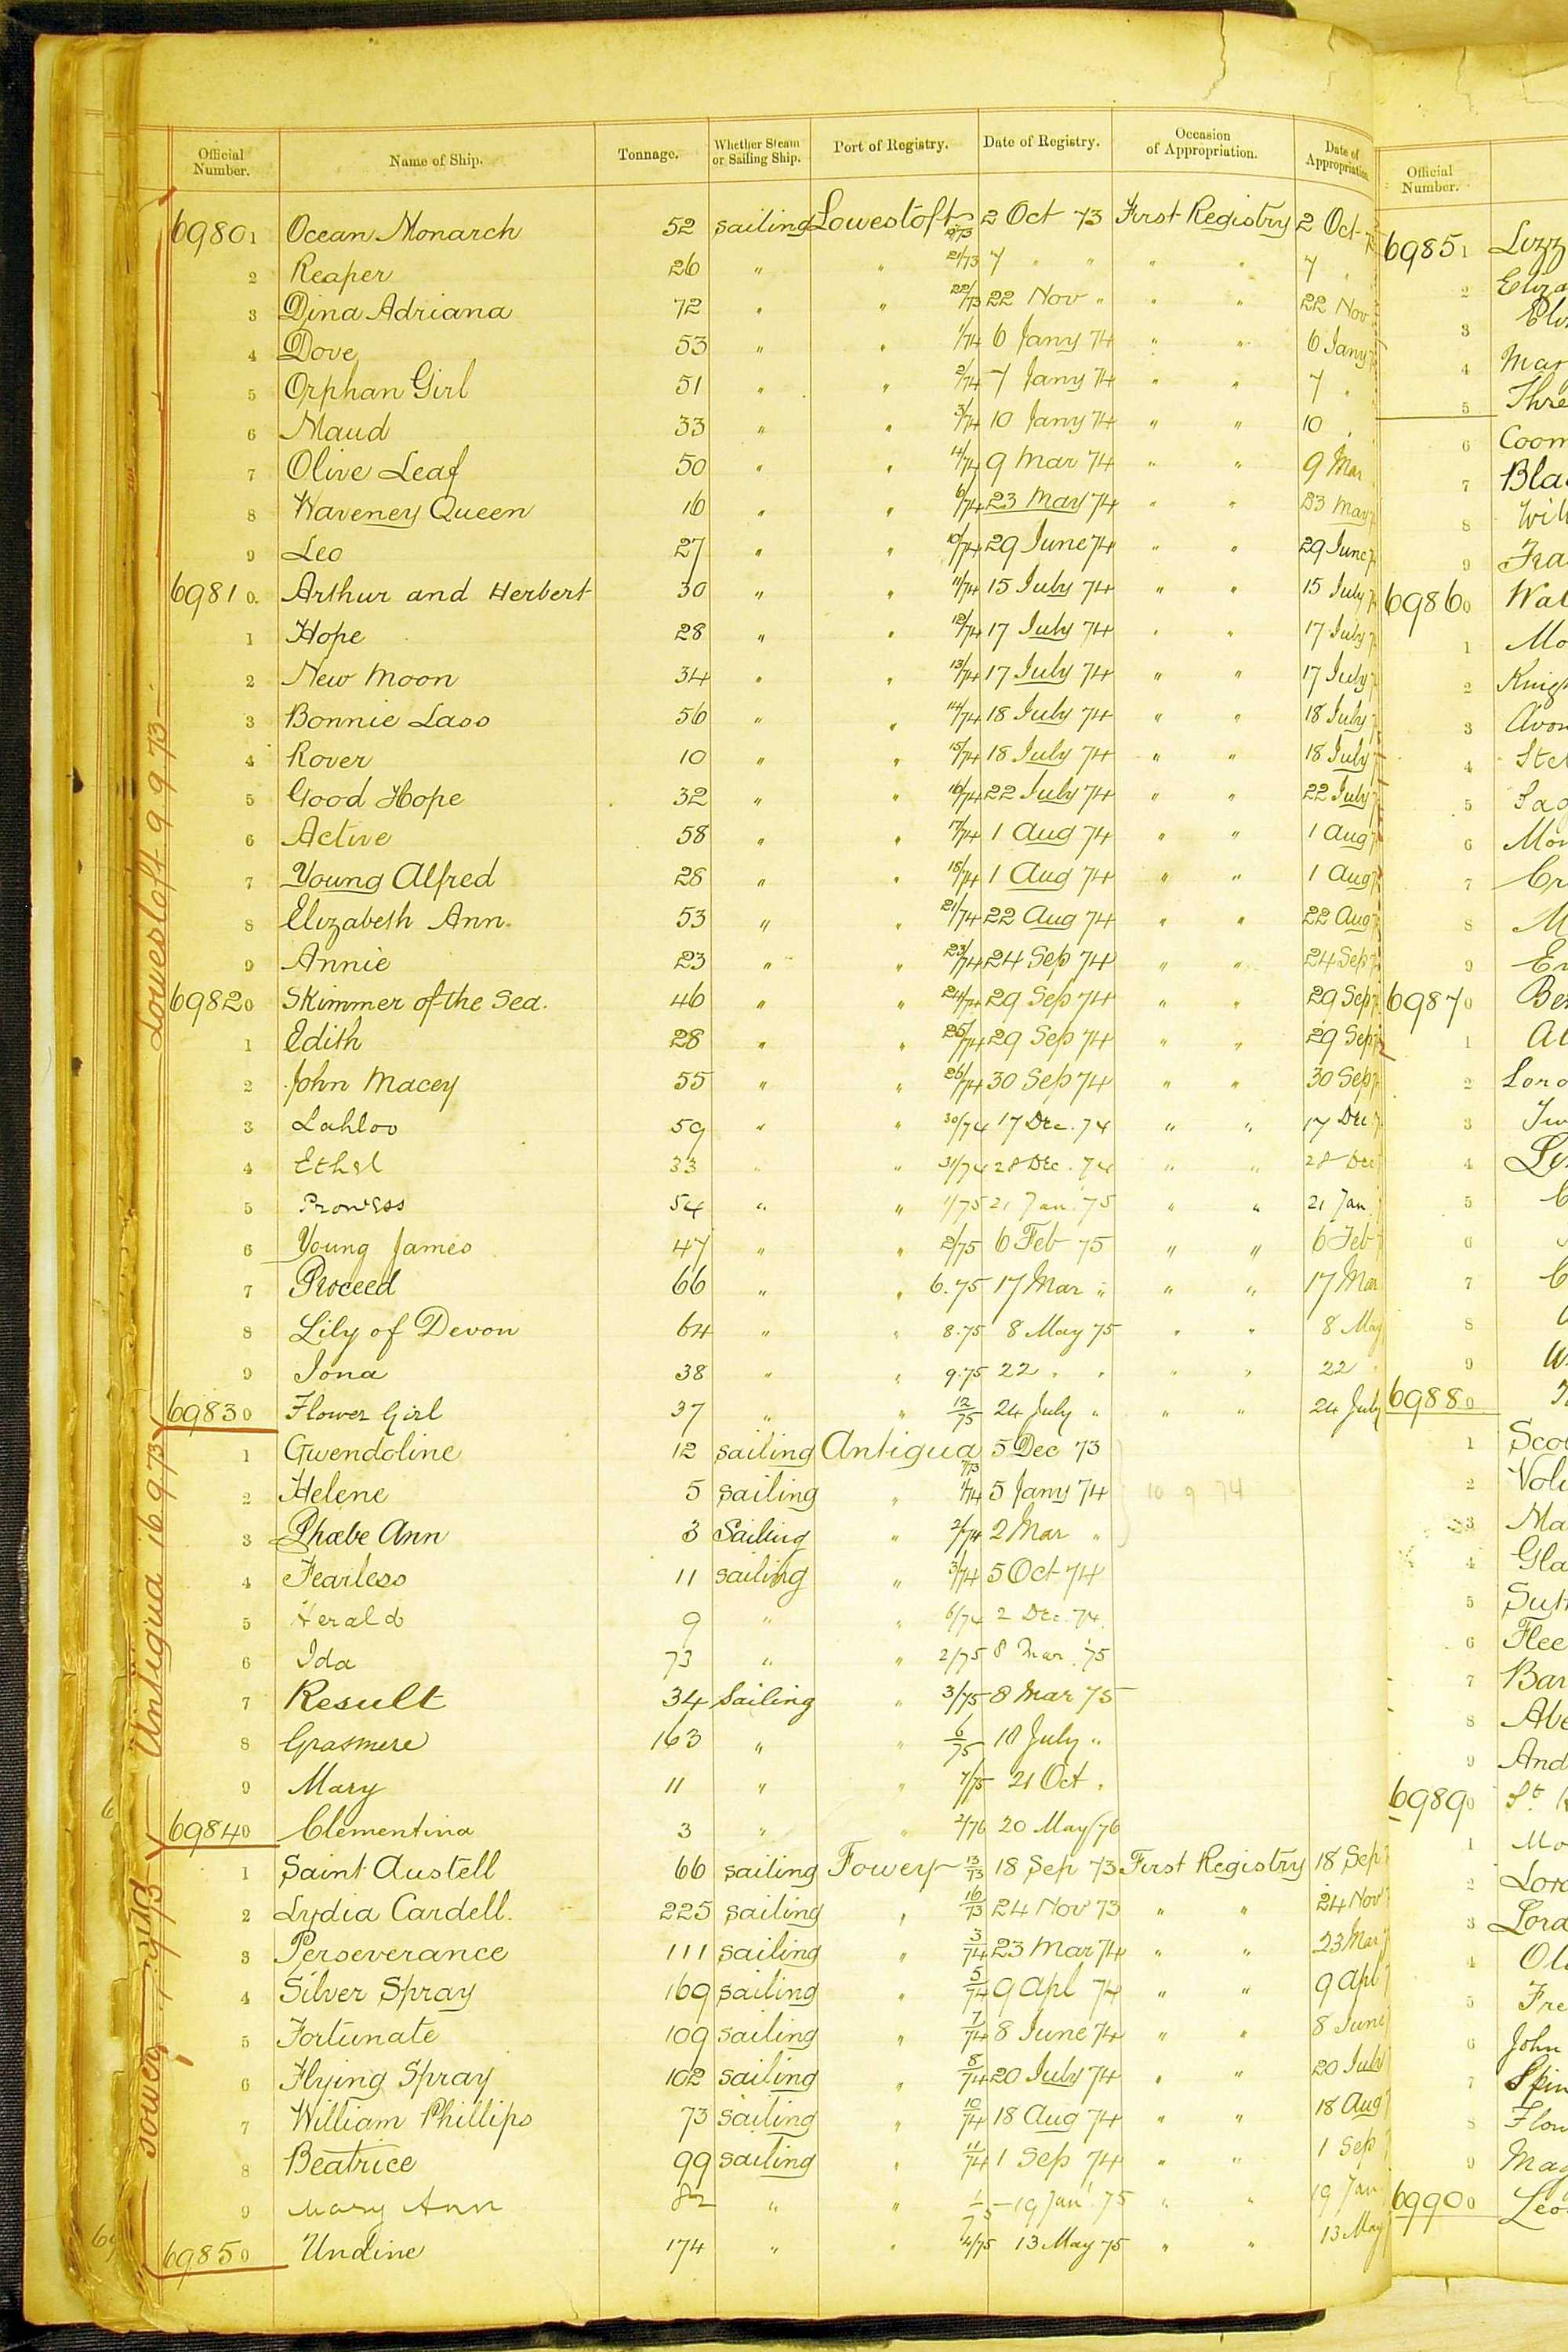 Official Number. Name of Ship. Tonnage. Whether Steam or Sailing Ship. Port of Registry. Date of Registry. Occasion of Appropriation. Date of Appropriation
69801 Ocean Monarch 52 sailing Lowestoft 2 Oct 73 First Registry 2 Oct
2 Reaper 26 " " 21/73 7 " " " " 7 "
3 Dina Adriana 72 " " 22/73 22 Nov " " " 22 Nov
4 Dove 53 " " 1/74 6 Jany 74 " " 6 Jany
5 Orphan Girl 51 " " 2/74 7 Jany 74 " " 7 "
6 Maud 33 " " 3/74 10 Jany 74 " " 10 "
7 Olive Leaf 50 " " 4/74 9 Mar 74 " " 9 Mar
8 Waveney Queen 16 " " 6/74 23 May 74 " " 23 May
9 Leo 27 " " 10/74 29 June 74 " " 29 June
69810 Arthur and Herbert 30 " " 11/74 15 July 74 " " 15 July
1 Hope 28 " " 12/74 17 July 74 " " 17 July
2 New Moon 34 " " 13/74 17 July 74 " " 17 July
3 Bonnie Lass 56 " " 14/74 18 July 74 " " 18 July
4 Rover 10 " " 15/74 18 July 74 " " 18 July
5 Good Hope 32 " " 16/74 22 July 74 " " 22 July
6 Active 58 " " 17/74 1 Aug 74 " " 1 Aug
7 Young Alfred 28 " " 18/74 1 Aug 74 " " 1 Aug
8 Elizabeth Ann. 53 " " 21/74 22 Aug 74 " " 22 Aug
9 Annie 23 " " 23/74 24 Sep 74 " " 24 Sep
69820 Skimmer of the Sea. 46 " " 24/74 29 Sep 74 " " 29 Sep
1 Edith 28 " " 25/74 29 Sep 74 " " 29 Sep
2 John Macey 55 " " 26/74 30 Sep 74 " " 30 Sep
3 Lahloo 59 " " 30/74 17 Dec. 74 " " 17 Dec
4 Ethel 33 " " 31/74 28 Dec. 74 " " 28 Dec
5 Prowess 54 " " 1/75 21 Jan. 75 " " 21 Jan
6 Young James 47 " " 2/75 6 Feb 75 " " 6 Feb
7 Proceed 66 " " 6.75 17 Mar " " " 17 Mar
8 Lily of Devon 64 " " 8.75 8 May 75 " " 8 May
9 Iona 38 " " 9.75 22 " " " " 22 "
69830 Flower Girl 37 " " 12/75 24 July " " " 24 July
1 Gwendoline 12 sailing Antigua 7/73 5 Dec 73
2 Helene 5 sailing " 1/74 5 Jany 74 10 9 74
3 Phœbe Ann 3 Sailing " 2/74 2 Mar "
4 Fearless 11 sailing " 3/74 5 Oct 74
5 Herald 9 " " 6/74 2 Dec. 74.
6 Ida 73 " " 2/75 8 Mar. 75
7 Result 34 Sailing " 3/75 8 Mar 75
8 Grasmere 163 " " 6/75 10 July "
9 Mary 11 " " 7/75 21 Oct "
69840 Clementina 3 " " 2/76 20 May/76
1 Saint Austell 66 sailing Fowey 13/73 18 Sep 73 First Registry 18 Sep
2 Lydia Cardell. 225 sailing " 16/73 24 Nov 73 " " 24 Nov
3 Perseverance 111 sailing " 3/74 23 Mar 74 " " 23 Mar
4 Silver Spray 169 sailing " 5/74 9 Apl 74 " " 9 Apl
5 Fortunate 109 sailing " 7/74 8 June 74 " " 8 June
6 Flying Spray 102 sailing " 8/74 20 July 74 " " 20 July
7 William Phillips 73 sailing " 10/74 18 Aug 74 " " 18 Aug
8 Beatrice 99 sailing " 11/74 1 Sep 74 " " 1 Sep
9 Mary Ann 82 " " 1/75 19 Jan. 75 " " 19 Jan
69850 Undine 174 " " 4/75 13 May 75 " " 13 May
Lowestoft 9 9 73
Antigua 16 9 73
Official Number.
69851 Lizz
2 Eliza
3 Eli
4 Mar
5 Thre
6 Coom
7 Bla
8 Wil
9 Fra
69860 Wal
1 Mo
2 Knig
3 Avon
4 Stel
5 Sag
6 Mon
7 Cr
8 M
9 En
69870 Ber
1 Al
2 Lord
3 Tw
4
5
6
7
8
9
69880
1 Scot
2 Volu
3 Ma
4 Gla
5 Sut
6 Flee
7 Bar
8 Abe
9 And
69890 St.
1 Mo
2 Lord
3 Lord
4 Ol
5 Fre
6 John
7 Spin
8 Flow
9 Mag
69900 Leo